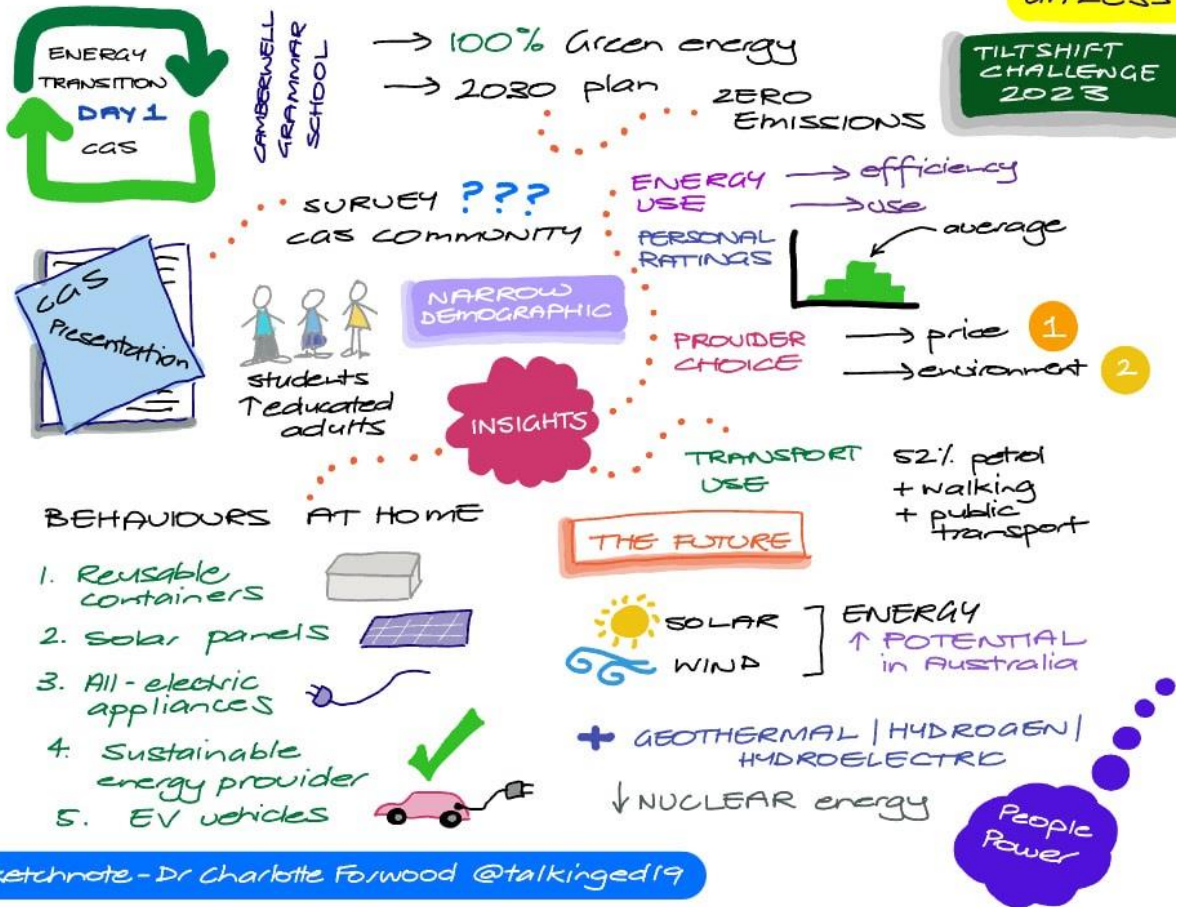 ENERGY
TRANSITION
DAY 1
CGS
CAMBERWELL
GRAMMAR
SCHOOL
→ 100% Green energy
→ 2030 plan
ZERO
EMISSIONS
TILTSHIFT
CHALLENGE
2023
SURVEY ???
CGS COMMUNITY
ENERGY
USE
→ efficiency
→ use
PERSONAL
RATINGS
average
CGS
Presentation
NARROW
DEMOGRAPHIC
students
↑ educated
adults
INSIGHTS
PROVIDER
CHOICE
→ price 1
→ environment 2
TRANSPORT
USE
52% petrol
+ walking
+ public
transport
BEHAVIOURS AT HOME
1. Reusable
containers
2. Solar panels
3. All-electric
appliances
4. Sustainable
energy provider
5. EV vehicles
THE FUTURE
SOLAR
WIND
ENERGY
↑ POTENTIAL
in Australia
+ GEOTHERMAL | HYDROGEN |
HYDROELECTRIC
↓ NUCLEAR energy
People
Power
ketchnote - Dr Charlotte Forwood @talkinged19